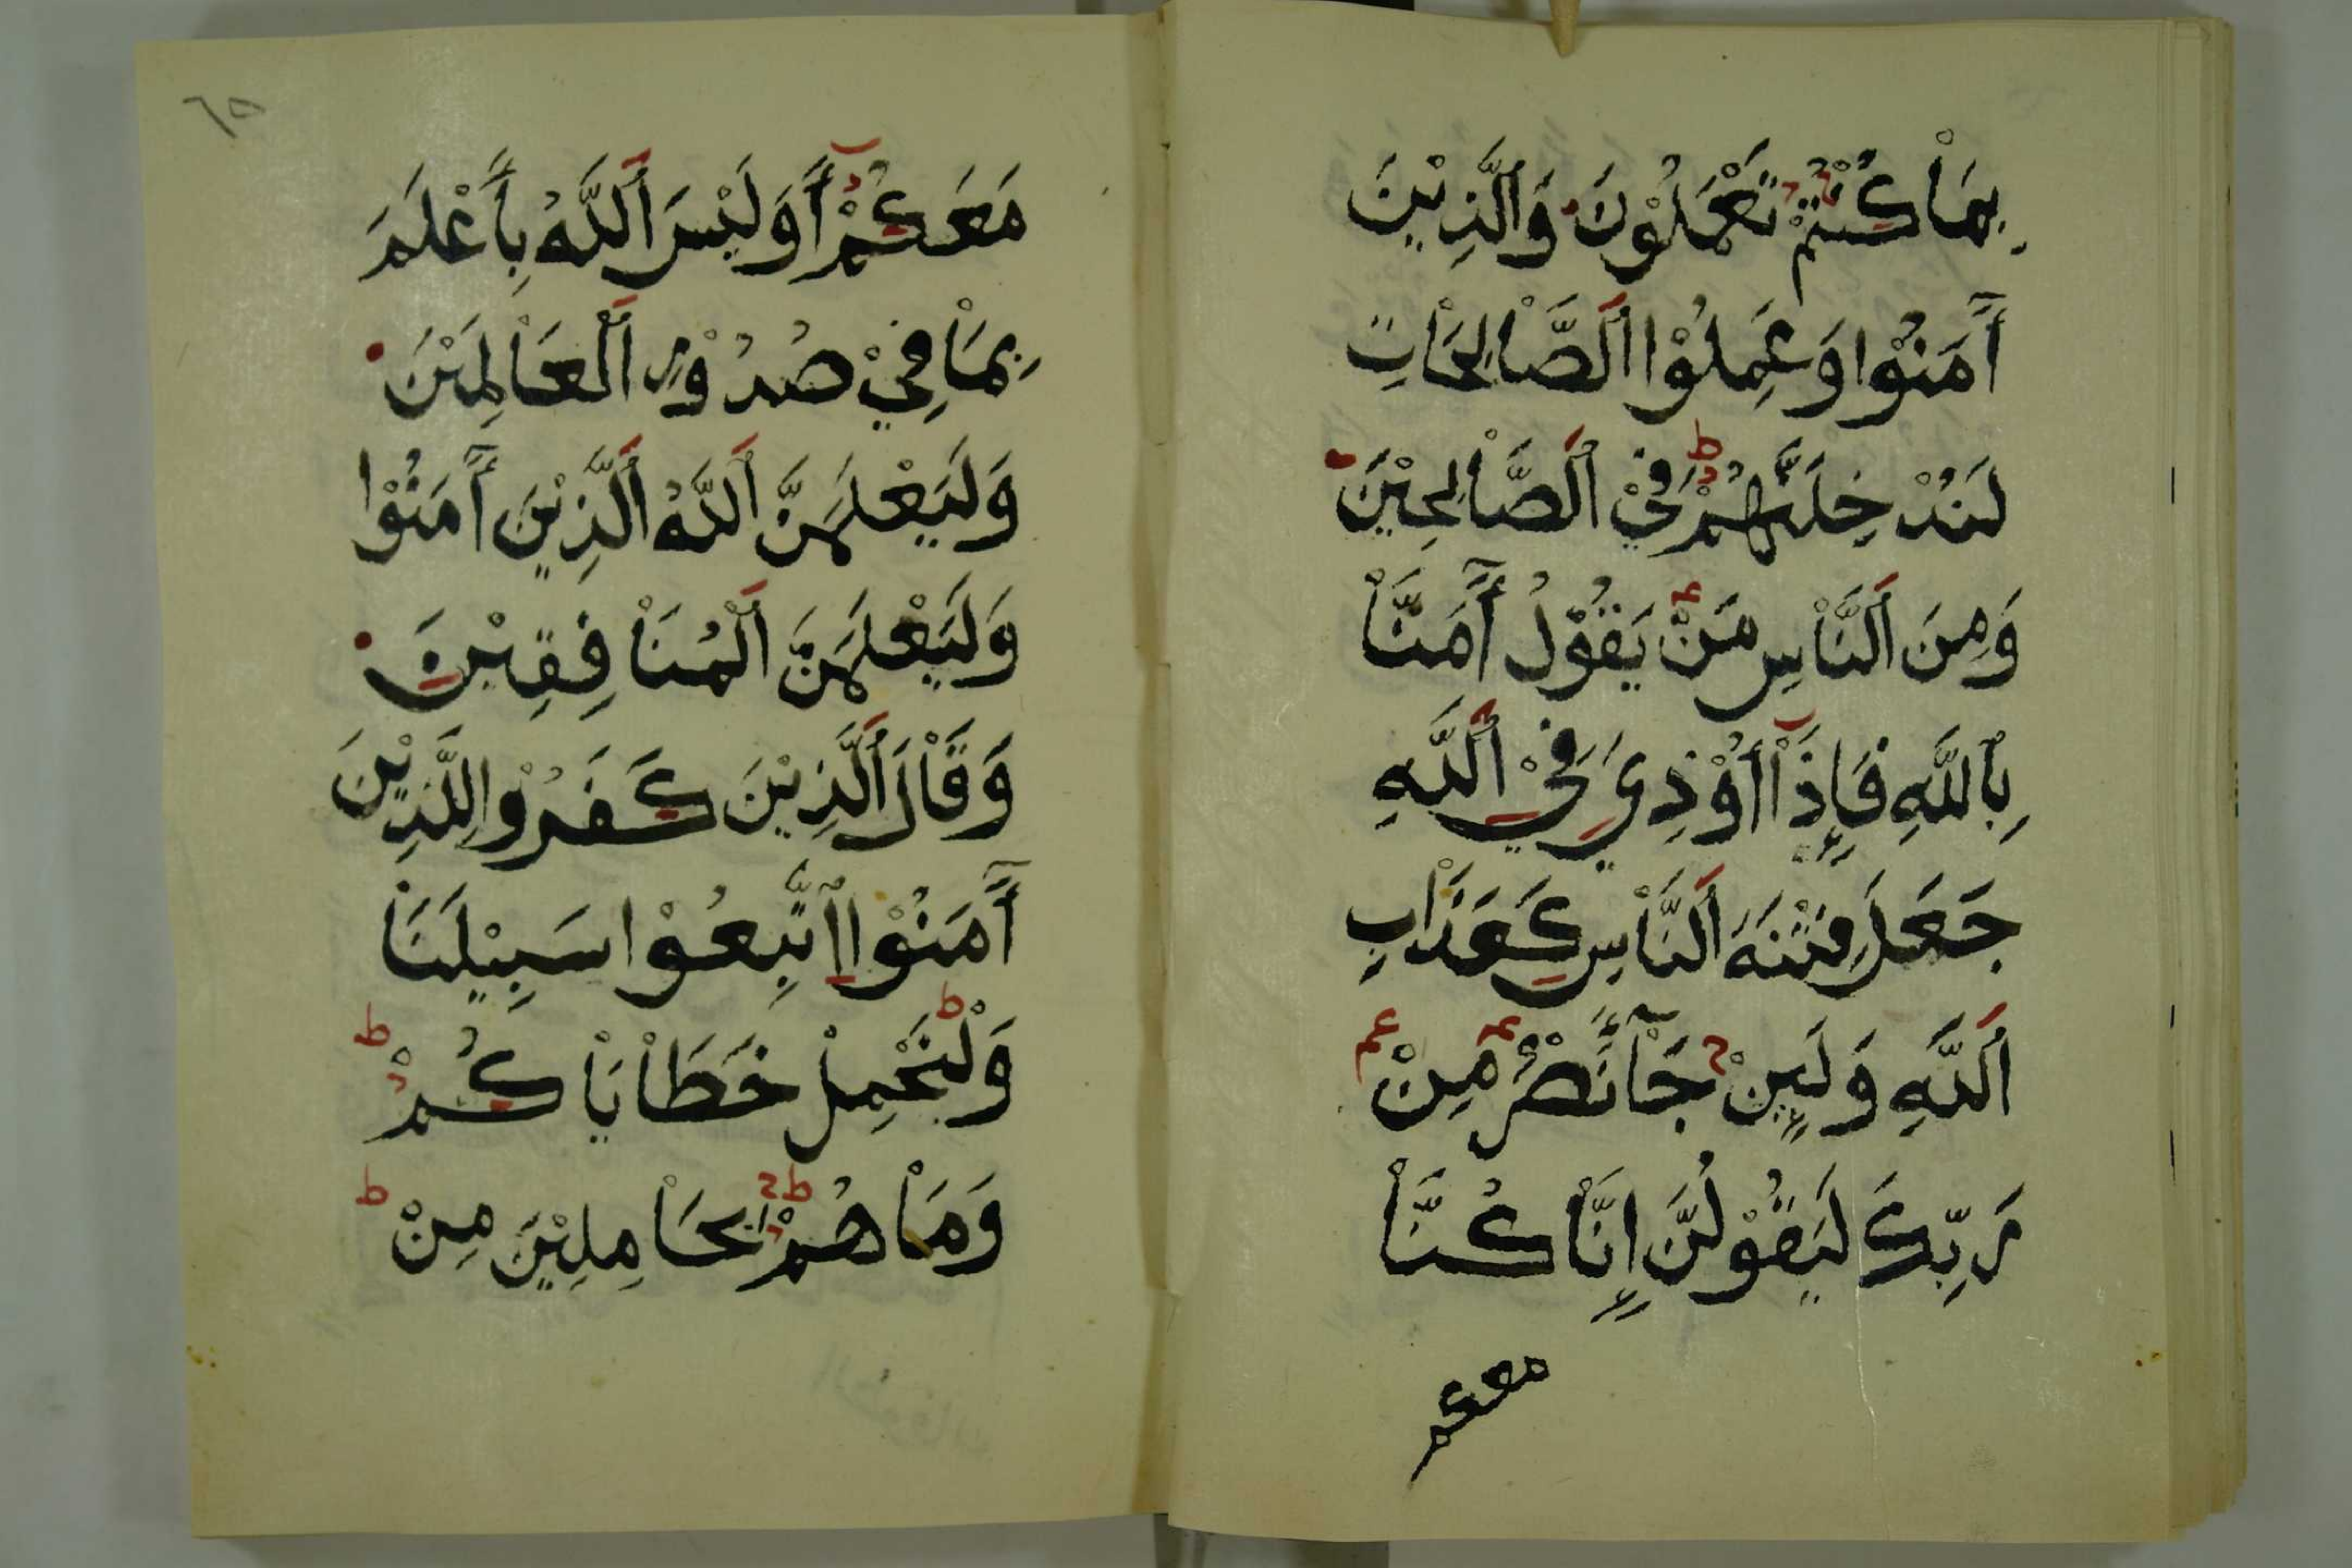 بِمَاْ كُنْتُمْ تَعْمَلُوْنَ وَالَّذِيْنَ
أَٓمَنُوْا وَعَمِلُوْا اَلصَّاْلِحَاْتِ
لَنُدْخِلَنَّهُمْ فِيْ اَلصَّاْلِحِيْنَ
وَمِنَ اَلنَّاْسِ مَنْ يَقُوْلُ أَٓمَنَّاْ
بِاللَّهِ فَإِذَاْ أُوْذِيَ فِيْ اَللَّهِ
جَعَلَ فِتْنَةَ اَلنَّاْسِ كَعَذَاْبِ
اَللَّهِ وَلَئِنْ جَآءَ نَصْرٌ مِنْ
رَبِّكَ لَيَقُوْلُنَّ إِنَّاْ كُنَّاْ
معكم
٦٥
مَعَكُمْ أَوَلَيْسَ اَللَّهُ بِأَعْلَمَ
بِمَاْ فِيْ صُدُوْرِ اَلْعَاْلَمِيْنَ
وَلَيَعْلَمَنَّ اَللَّهُ اَلَّذِيْنَ أَٓمَنُوْا
وَلَيَعْلَمَنَّ اَلْمُنَاْفِقِيْنَ
وَقَاْلَ اَلَّذِيْنَ كَفَرُوْا لِلَّذِيْنَ
أَٓمَنُوْا اتَّبِعُوْا سَبِيْلَنَاْ
وَلْنَحْمِلْ خَطَاْيَاْكُمْ
وَمَاْ هُمْ بِحَاْمِلِيْنَ مِنْ